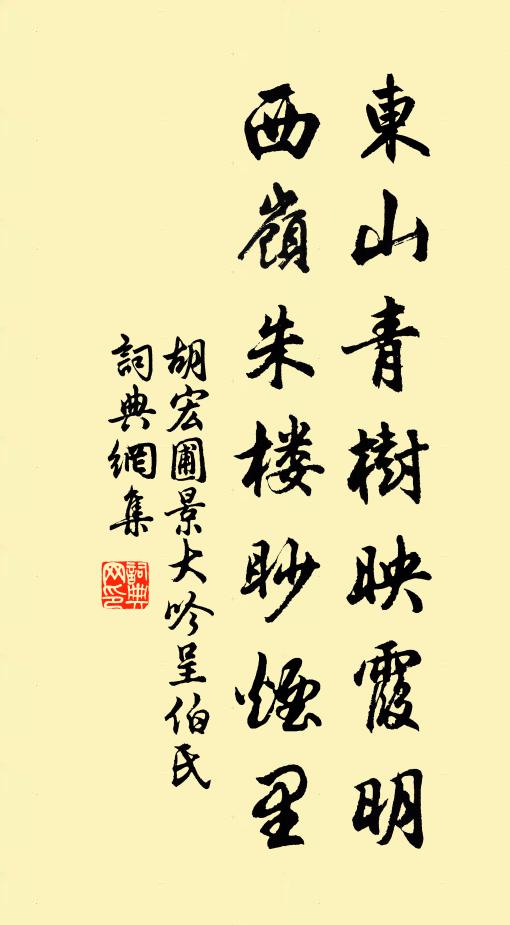 東山青樹映霞明
西嶺朱楼眇煙里
胡宏圃景大吟呈伯氏
詞典網集
詞典网印